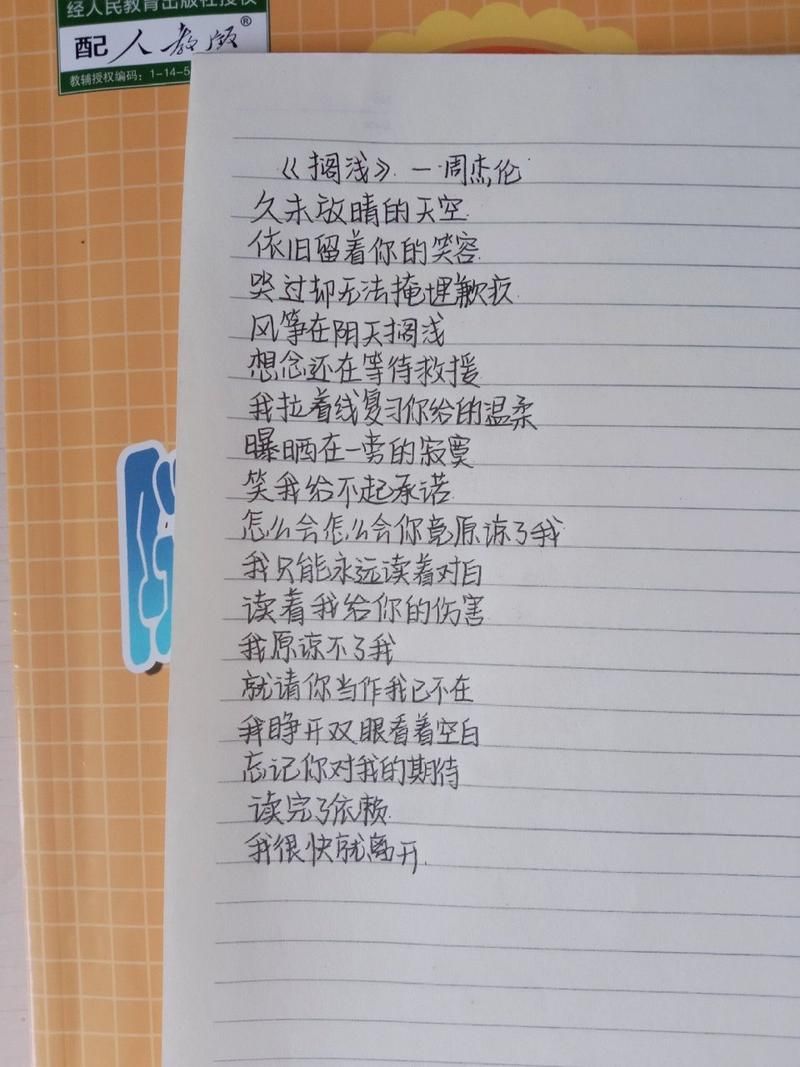 经人民教育出版社授权
配人教版®
教辅授权编码：1-14-5
《搁浅》—周杰伦
久未放晴的天空
依旧留着你的笑容
哭过却无法掩埋歉疚
风筝在阴天搁浅
想念还在等待救援
我拉着线复习你给的温柔
曝晒在一旁的寂寞
笑我给不起承诺
怎么会怎么会你竟原谅了我
我只能永远读着对白
读着我给你的伤害
我原谅不了我
就请你当作我已不在
我睁开双眼看着空白
忘记你对我的期待
读完了依赖
我很快就离开